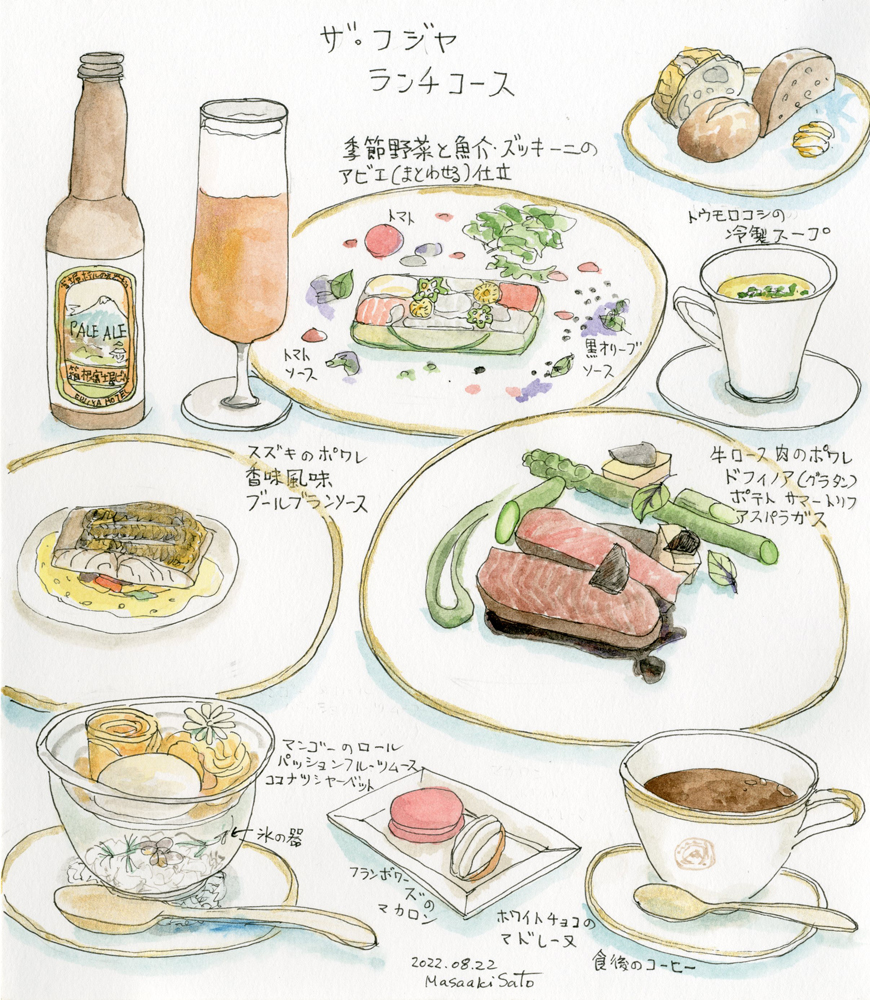 ザ・フジヤ
ランチコース
季節野菜と魚介・ズッキーニの
アビエ(まとわせる)仕立
トマト
トマト
ソース
黒オリーブ
ソース
トウモロコシの
冷製スープ
PALE ALE
箱根富士屋ビール
FUJIYA HOTEL
スズキのポワレ
香味風味
ブールブランソース
牛ロース肉のポワレ
ドフィノア(グラタン)
ポテト サマートリフ
アスパラガス
マンゴーのロール
パッションフルーツムース
ココナツシャーベット
氷の器
フランボワー
ズの
マカロン
ホワイトチョコの
マドレーヌ
食後のコーヒー
2022.08.22
Masaaki Sato